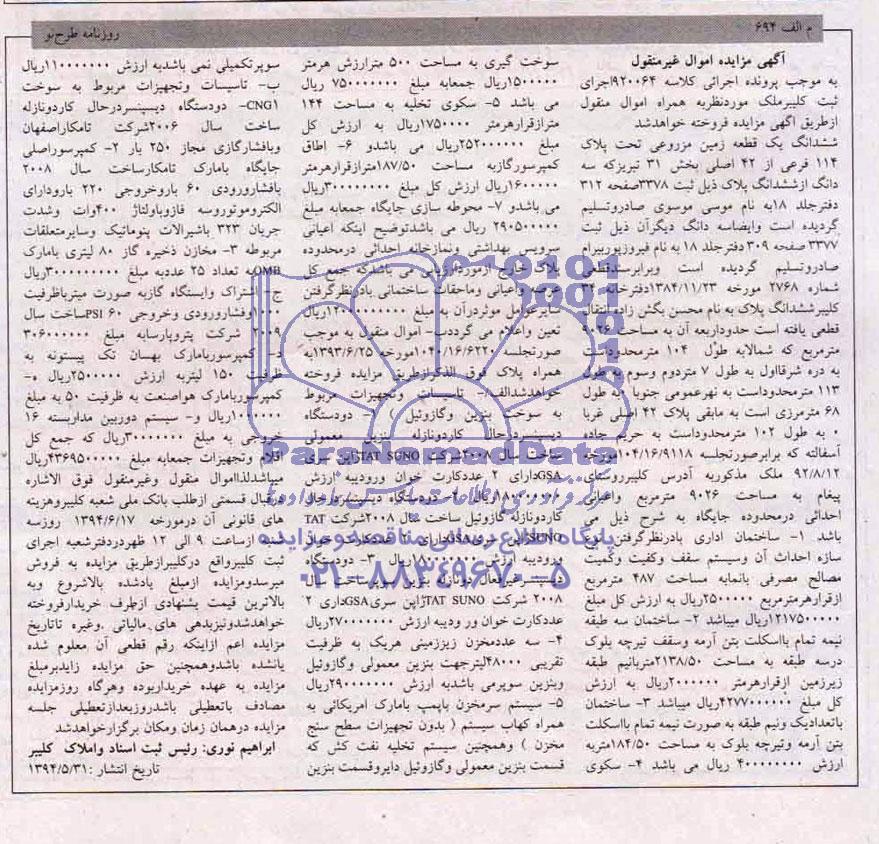 م الف ۶۹۴
روزنامه طرح نو
آگهی مزایده اموال غیرمنقول
به موجب پرونده اجرائی کلاسه ۹۲۰۰۶۴اجرای
ثبت کلیبرملک موردنظربه همراه اموال منقول
ازطریق آگهی مزایده فروخته خواهدشد
ششدانگ یک قطعه زمین مزروعی تحت پلاک
۱۱۴ فرعی از ۴۲ اصلی بخش ۳۱ تبریزکه سه
دانگ ازششدانگ پلاک ذیل ثبت ۳۳۷۸صفحه ۳۱۲
دفترجلد ۱۸به نام موسی موسوی صادروتسلیم
گردیده است وایضاسه دانگ دیگرآن ذیل ثبت
۳۳۷۷ صفحه ۳۰۹ دفترجلد ۱۸ به نام فیروزپوربیرام
صادروتسلیم گردیده است وبرابرسندقطعی
شماره ۲۷۶۸ مورخه ۱۳۸۴/۱۱/۲۳دفترخانه ۳۴
کلیبرششدانگ پلاک به نام محسن بگش زاده انتقال
قطعی یافته است حدوداربعه آن به مساحت ۹۰۲۶
مترمربع که شمالابه طول ۱۰۴ مترمحدوداست
به دره شرقااول به طول ۷ متردوم وسوم به طول
۱۱۳ مترمحدوداست به نهرعمومی جنوبا ۰ به طول
۶۸ مترمرزی است به مابقی پلاک ۴۲ اصلی غربا
۰ به طول ۱۰۲ مترمحدوداست به حریم جاده
آسفالته که برابرصورتجلسه ۱۰۴/۱۶/۹۱۱۸مورخه
۹۲/۸/۱۲ ملک مذکوربه آدرس کلیبرروستای
پیغام به مساحت ۹۰۲۶ مترمربع واعیانی
احداثی درمحدوده جایگاه به شرح ذیل می
باشد ۱- ساختمان اداری بادرنظرگرفتن
سازه احداث آن وسیستم سقف وکفیت وکمیت
مصالح مصرفی بانمابه مساحت ۴۸۷ مترمربع
ازقرارهرمترمربع ۲۵۰۰۰۰۰ریال به ارزش کل مبلغ
۱۲۱۷۵۰۰۰۰۰ریال میباشد ۲- ساختمان سه طبقه
نیمه تمام بااسکلت بتن آرمه وسقف تیرچه بلوک
درسه طبقه به مساحت ۲۱۳۸/۵۰متربانیم طبقه
زیرزمین ازقرارهرمتر ۲۰۰۰۰۰۰ریال به ارزش
کل مبلغ ۴۲۷۷۰۰۰۰۰۰ریال میباشد ۳- ساختمان
باتعدادیک ونیم طبقه به صورت نیمه تمام بااسکلت
بتن آرمه وتیرچه بلوک به مساحت ۱۸۴/۵۰متربه
ارزش ۴۰۰۰۰۰۰۰۰ ریال می باشد ۴- سکوی
سوخت گیری به مساحت ۵۰۰ مترارزش هرمتر
۱۵۰۰۰۰۰ریال جمعابه مبلغ ۷۵۰۰۰۰۰۰۰ ریال
می باشد ۵- سکوی تخلیه به مساحت ۱۴۴
مترازقرارهرمتر ۱۷۵۰۰۰۰ریال به ارزش کل
مبلغ ۲۵۲۰۰۰۰۰۰ریال می باشدو ۶- اطاق
کمپرسورگازبه مساحت ۱۸۷/۵۰مترازقرارهرمتر
۱۶۰۰۰۰۰ریال ارزش کل مبلغ ۳۰۰۰۰۰۰۰۰ریال
می باشدو ۷- محوطه سازی جایگاه جمعابه مبلغ
۲۹۰۵۰۰۰۰۰ ریال می باشدتوضیح اینکه اعیانی
سرویس بهداشتی ونمازخانه احداثی درمحدوده
پلاک خارج ازموردارزیابی می باشدکه جمع کل
عرصه واعیانی وماحقات ساختمانی بادرنظرگرفتن
سایرعوامل موثردرآن به مبلغ ریال
تعین واعلام می گرددب- اموال منقول به موجب
صورتجلسه ۱۰۴۰/۱۶/۶۲۲۰مورخه ۱۳۹۳/۶/۲۵به
همراه پلاک فوق الذکرازطریق مزایده فروخته
خواهدشدالف/- تاسیسات وتجهیزات مربوط
به سوخت بنزین وگازوئیل ۱- دودستگاه
دیسپنسردرحال کاردونازله بنزین معمولی
ساخت سال ۲۰۰۸شرکت TAT SUNOژاپن سری
GSAدارای ۲ عددکارت خوان ورودبیه ارزش
۱۸۰۰۰۰۰۰۰ریال ۲- دودستگاه دیسپنسردرحال
کاردونازله گازوئیل ساخت سال ۲۰۰۸شرکت TAT
SUNOژاپن سری GSAدارای ۲ عددکارت خوان
ورودبیه ارزش ۱۸۰۰۰۰۰۰۰ریال ۳- دودستگاه
دیسپنسرغیرفعال دونازله بنزین ساخت سال
۲۰۰۸ شرکت TAT SUNOژاپن سریGSAداری ۲
عددکارت خوان ور ودبیه ارزش ۲۷۰۰۰۰۰۰۰ریال
۴- سه عددمخزن زیرزمینی هریک به ظرفیت
تقریبی ۴۸۰۰۰لیترجهت بنزین معمولی وگازوئیل
وبنزین سوپرمی باشدبه ارزش ۲۹۰۰۰۰۰۰۰ریال
۵- سیستم سرمخزن باپمپ بامارک امریکائی به
همراه کهاب سیستم ( بدون تجهیزات سطح سنج
مخزن ) وهمچنین سیستم تخلیه نفت کش که
قسمت بنزین معمولی وگازوئیل دایروقسمت بنزین
سوپرتکمیلی نمی باشدبه ارزش ۱۱۰۰۰۰۰۰۰ریال
ب- تاسیسات وتجهیزات مربوط به سوخت
CNG۱- دودستگاه دیسپنسردرحال کاردونازله
ساخت سال ۲۰۰۶شرکت تامکاراصفهان
وبافشارگازی مجاز ۲۵۰ بار ۲- کمپرسوراصلی
جایگاه بامارک تامکارساخت سال ۲۰۰۸
بافشارورودی ۶۰ باروخروجی ۲۲۰ بارودارای
الکتروموتوروسه فازوباولتاژ ۴۰۰وات وشدت
جریان ۳۲۳ باشیرالات پنوماتیک وسایرمتعلقات
مربوطه ۳- مخازن ذخیره گاز ۸۰ لیتری بامارک
OMBبه تعداد ۲۵ عددبه مبلغ ۳۰۰۰۰۰۰۰۰۰ریال
ج- اشتراک وایستگاه گازبه صورت میترباظرفیت
۱۰۰۰وفشارورودی وخروجی ۶۰ PSIساخت سال
۲۰۰۹ شرکت پتروپارسابه مبلغ ۳۰۶۰۰۰۰۰۰
د- کمپرسوربامارک بهسان تک پیستونه به
ظرفیت ۱۵۰ لیتربه ارزش ۲۵۰۰۰۰۰ریال ه-
کمپرسوربامارک هواصنعت به ظرفیت ۵۰ به مبلغ
۱۰۰۰۰۰۰ریال و- سیستم دوربین مداربسته ۱۶
خروجی به مبلغ ۳۰۰۰۰۰۰۰ریال که جمع کل
اقلام وتجهیزات جمعابه مبلغ ۴۳۶۹۵۰۰۰۰۰ریال
میباشدلذااموال منقول وغیرمنقول فوق الاشاره
درقبال قسمتی ازطلب بانک ملی شعبه کلیبروهزینه
های قانونی آن درمورخه ۱۳۹۴/۶/۱۷ روزسه
شنبه ازساعت ۹ الی ۱۲ ظهردردفترشعبه اجرای
ثبت کلیبرواقع درکلیبرازطریق مزایده به فروش
میرسدومزایده ازمبلغ یادشده بالاشروع وبه
بالاترین قیمت پشنهادی ازطرف خریدارفروخته
خواهدشدونیزبدهی های مالیاتی .وغیره تاتاریخ
مزایده اعم ازاینکه رقم قطعی آن معلوم شده
یانشده باشدوهمچنین حق مزایده زایدبرمبلغ
مزایده به عهده خریداربوده وهرگاه روزمزایده
مصادف باتعطیلی باشدروزبعدازتعطیلی جلسه
مزایده درهمان زمان ومکان برگزارخواهدشد
ابراهیم نوری: رئیس ثبت اسناد واملاک کلیبر
تاریخ انتشار :۱۳۹۴/۵/۳۱
ParsNamadData
پایگاه اطلاع رسانی مناقصه و مزایده
۰۲۱-۸۸۳۴۹۶۷۰-۵